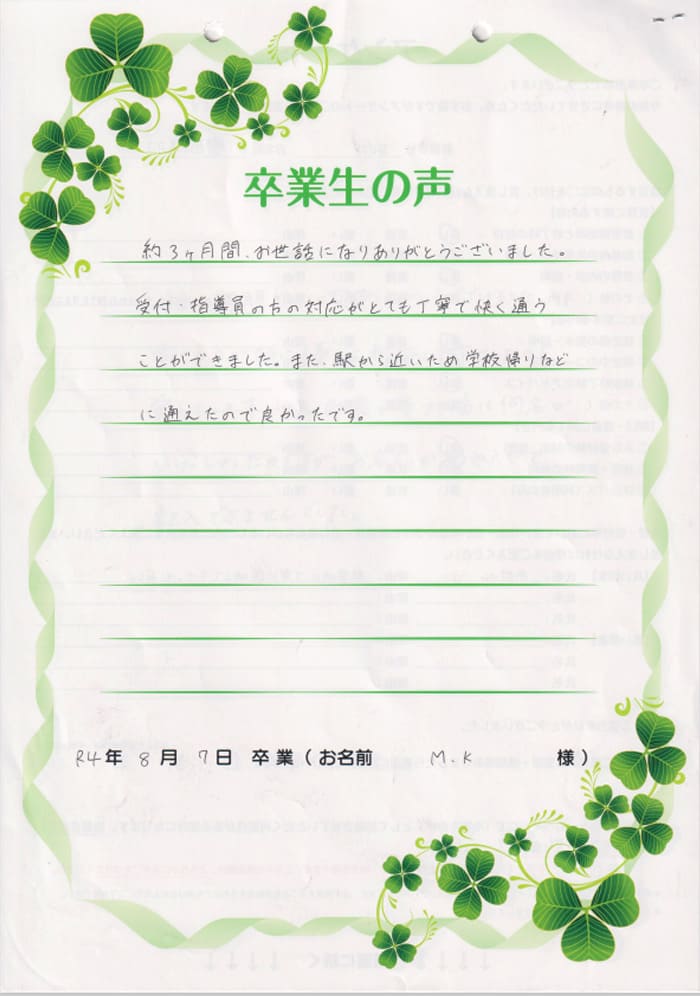 卒業生の声
約3ヶ月間、お世話になりありがとうございました。
受付・指導員の方の対応がとても丁寧で快く通う
ことができました。また、駅から近いため学校帰りなど
に通えたので良かったです。
R4年 8月 7日 卒業(お名前 M.K 様)